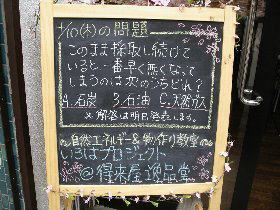 4/10(木)の問題
このまま採取し続けて
いると、一番早く無くなって
しまうのは次のうちどれ？
A.石炭 B.石油 C.天然ガス
※解答は明日発表します。
自然エネルギー&物作り教室
いろはプロジェクト
@得来屋逸品堂